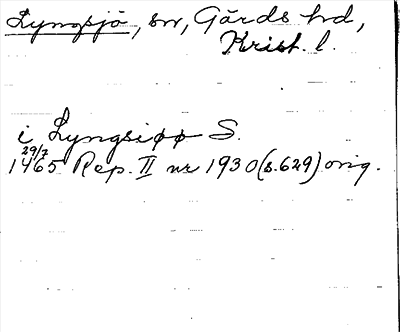 Lyngsjö, sn, Gärds hd,
Krist. l.
i Lyngsiøø S.
29/7
1465 Rep. II nr 1930 (s. 629) orig.